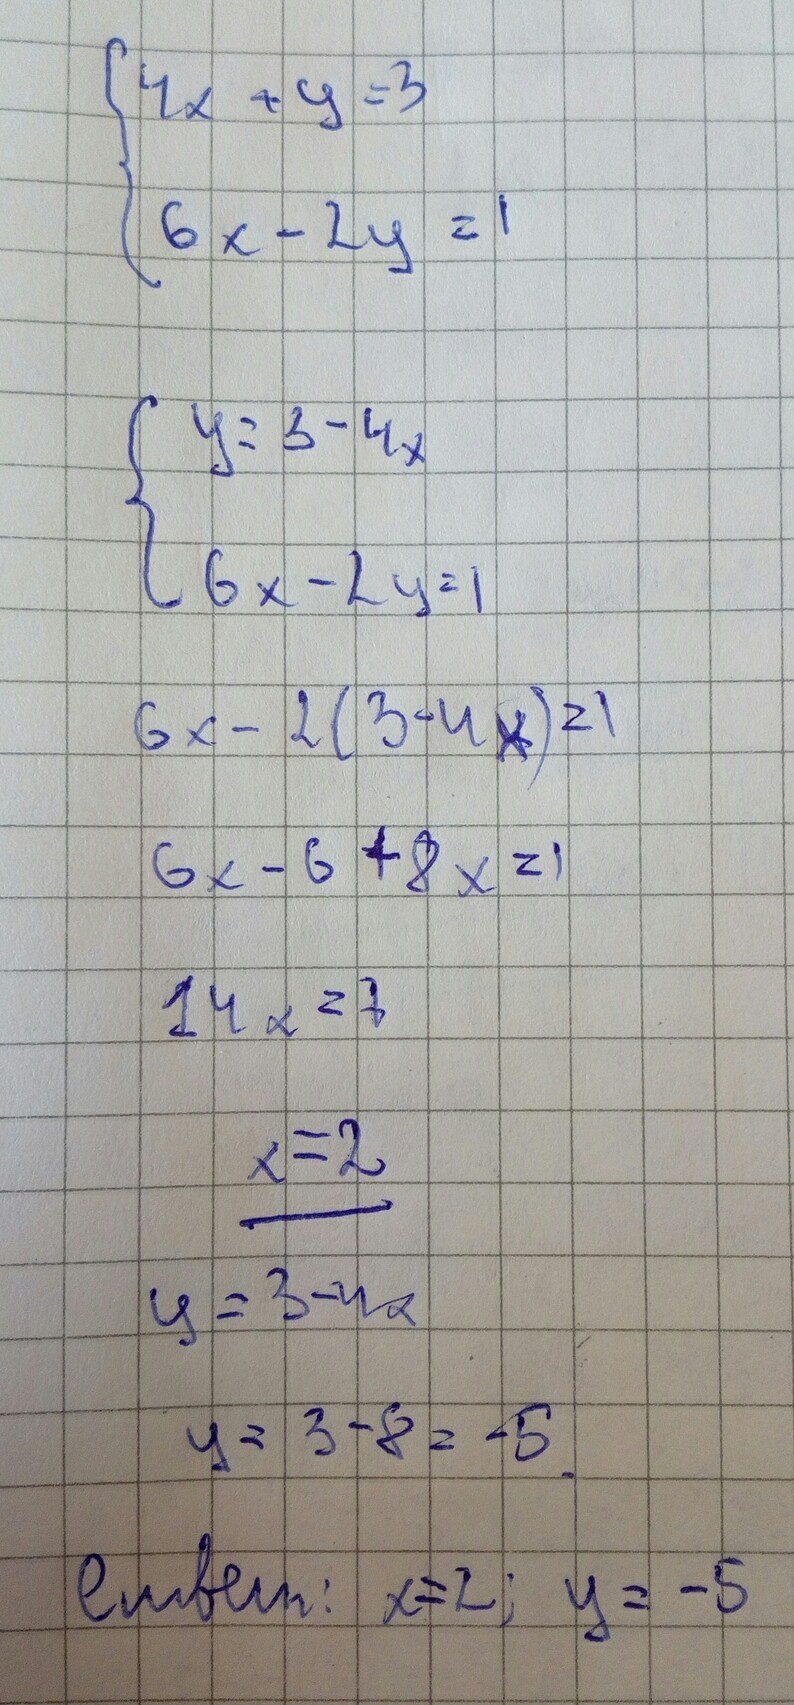 4x + y = 3
6x - 2y = 1
y = 3 - 4x
6x - 2y = 1
6x - 2(3 - 4x) = 1
6x - 6 + 8x = 1
14x = 7
x = 2
y = 3 - 4x
y = 3 - 8 = -5.
Ответ: x = 2; y = -5